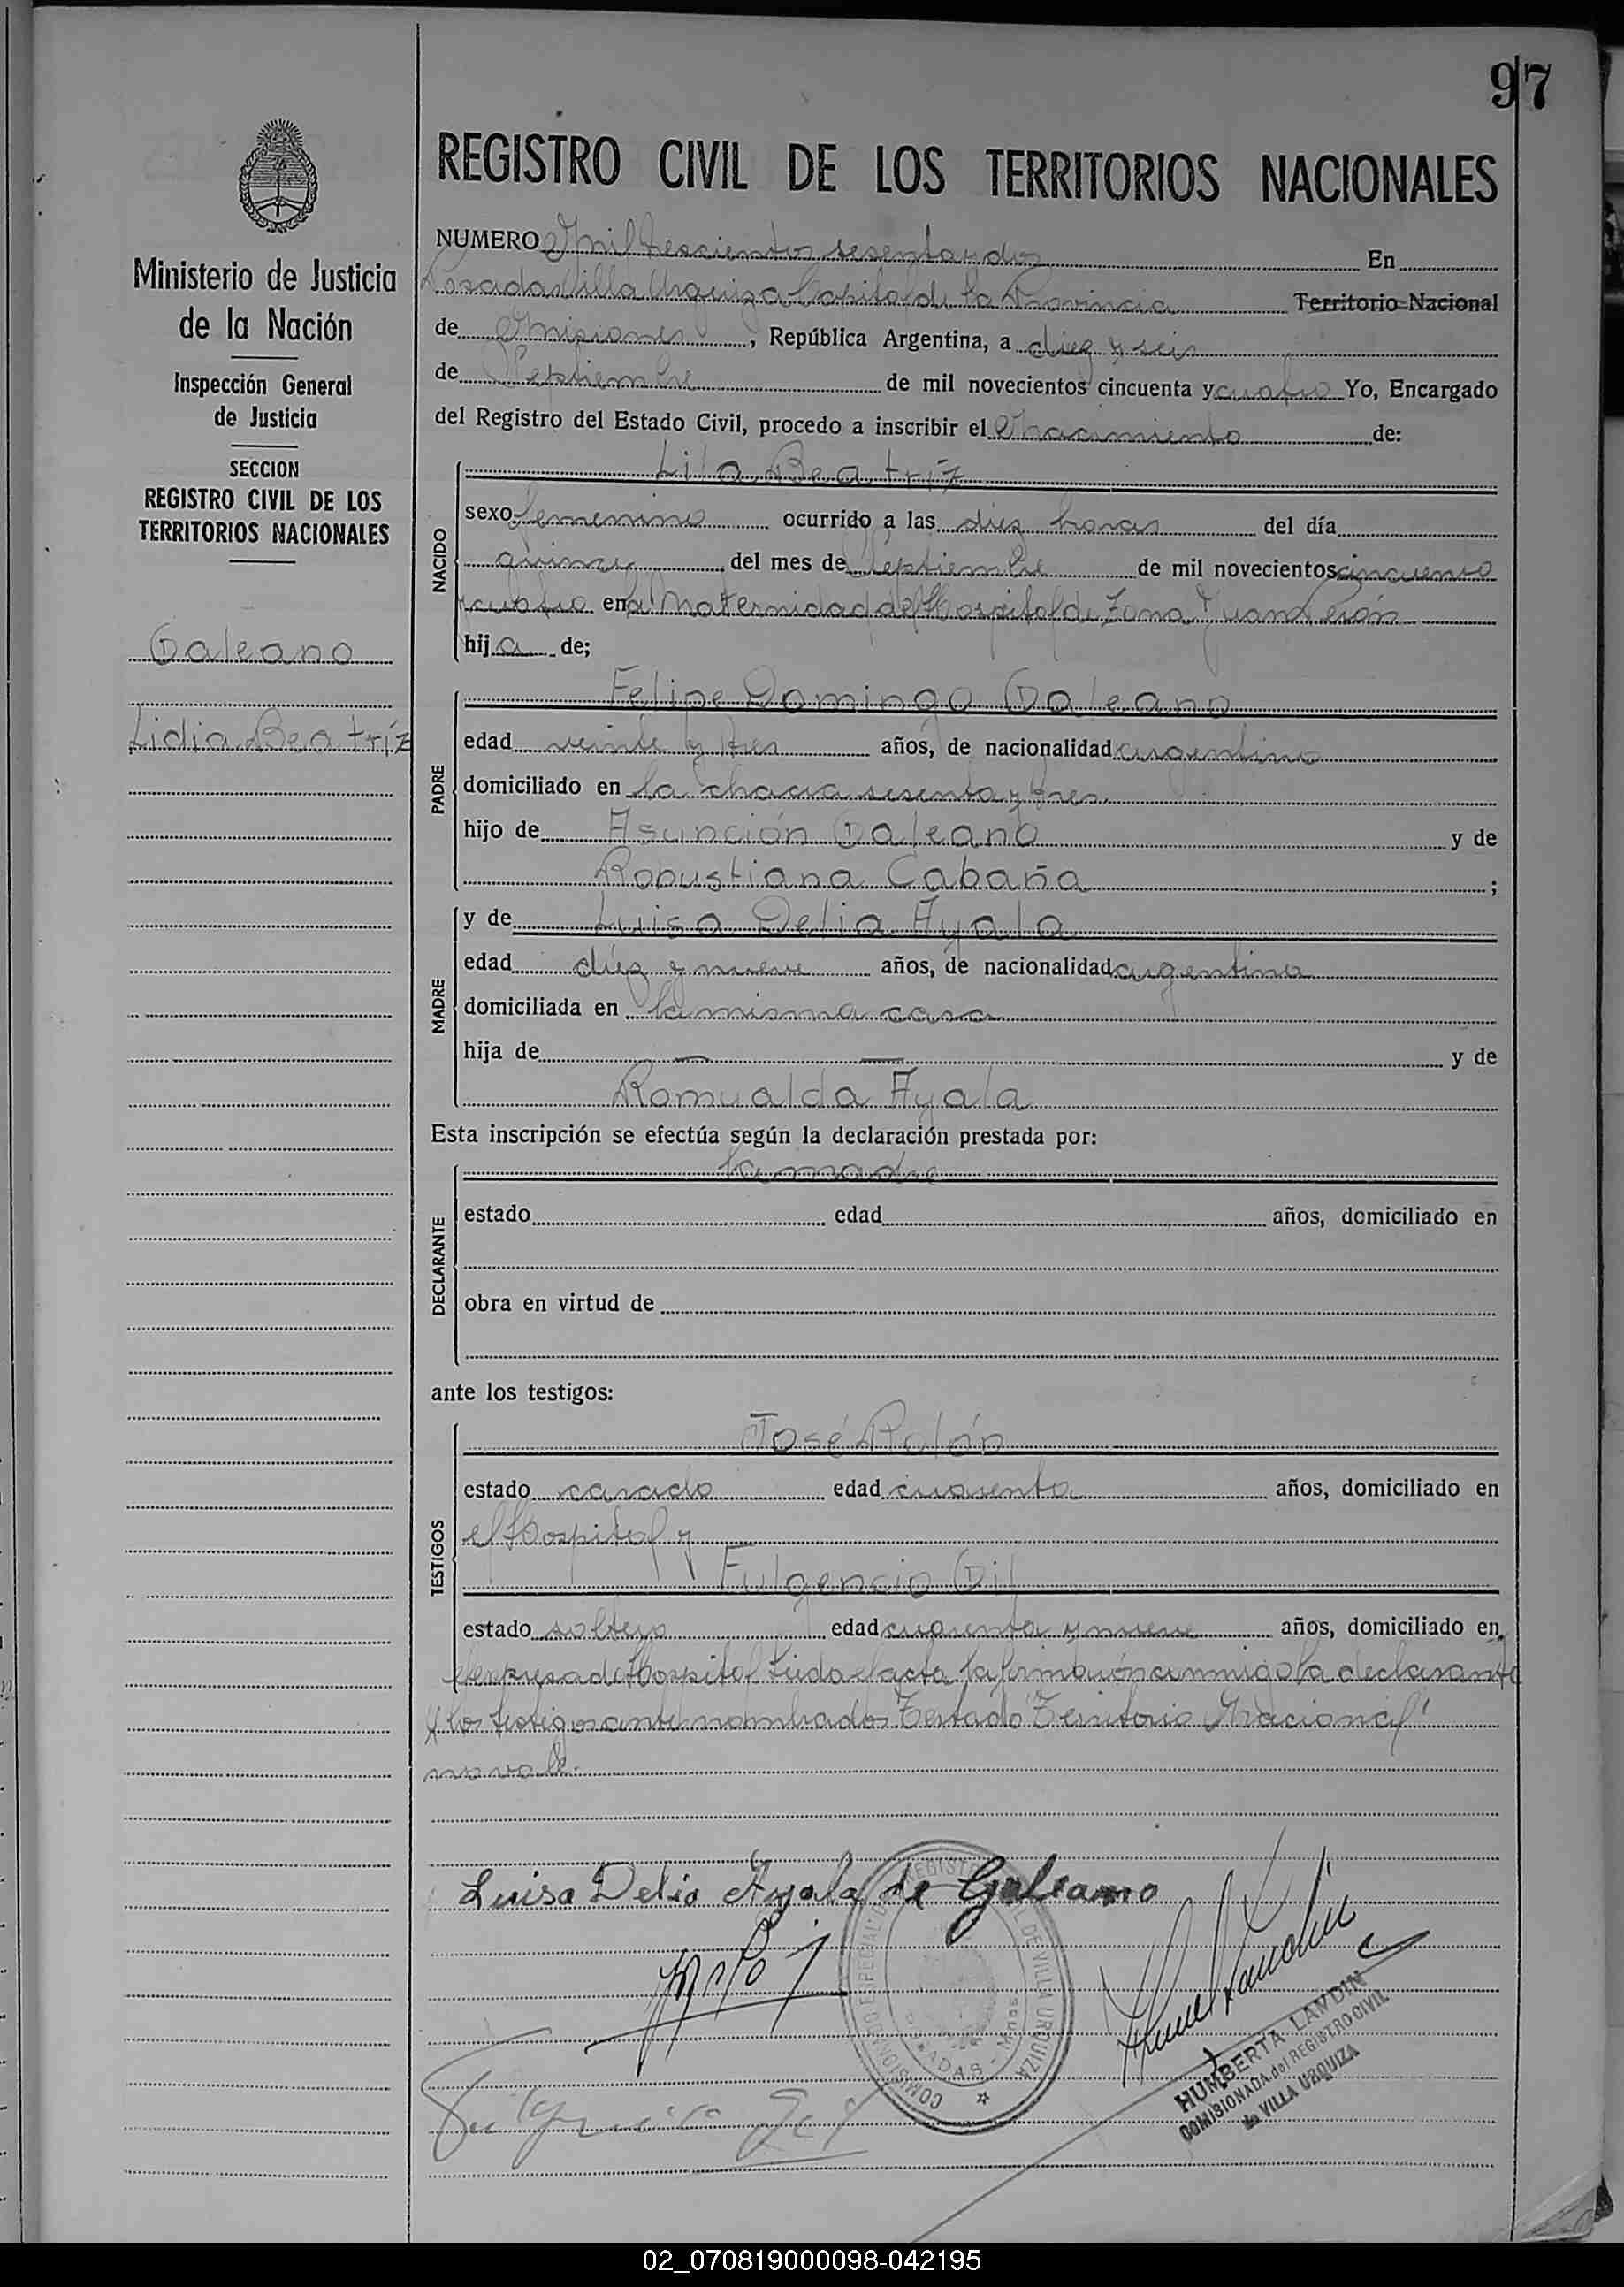 97
REGISTRO CIVIL DE LOS TERRITORIOS NACIONALES
Ministerio de Justicia
de la Nación
Inspección General
de Justicia
SECCION
REGISTRO CIVIL DE LOS
TERRITORIOS NACIONALES
Galeano
Lidia Beatríz
NUMERO Mil trescientos sesenta y dos En
Posadas Villa Urquiza Capital de la Provincia Territorio Nacional
de Misiones, República Argentina, a diez y seis
de Septiembre de mil novecientos cincuenta y cuatro Yo, Encargado
del Registro del Estado Civil, procedo a inscribir el Nacimiento de:
NACIDO
Beatríz
sexo femenino ocurrido a las diez horas del día
quince del mes de Septiembre de mil novecientos cincuenta
y cuatro en la Maternidad del Hospital de Zona Juan Perón
hija de;
PADRE
Felipe Domingo Galeano
edad veinte y tres años, de nacionalidad argentino
domiciliado en la chacra sesenta y tres.
hijo de Asunción Galeano y de
Robustiana Cabaña ;
MADRE
y de Luisa Delia Ayala
edad diez y nueve años, de nacionalidad argentina
domiciliada en la misma casa
hija de — — y de
Romualda Ayala
Esta inscripción se efectúa según la declaración prestada por:
DECLARANTE
la madre
estado edad años, domiciliado en
obra en virtud de
ante los testigos:
TESTIGOS
José Rolón
estado casado edad cuarenta años, domiciliado en
el Hospital y
Fulgencio Gil
estado soltero edad cuarenta y nueve años, domiciliado en
el expresado Hospital Leída el acta la firmaron conmigo la declarante
y los testigos antes nombrados Testado "Territorio Nacional"
no vale.
Luisa Delia Ayala de Galeano
Fulgencio Gil
COMISIONADO ESPECIAL DEL REGISTRO CIVIL DE VILLA URQUIZA
POSADAS - Mnes.
HUMBERTA LANDIN
COMISIONADA del REGISTRO CIVIL
de VILLA URQUIZA
02_070819000098-042195